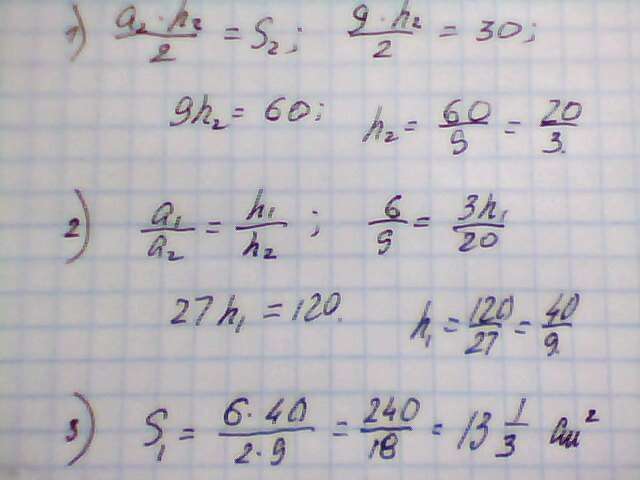 1) a₂·h₂/2 = S₂; 9·h₂/2 = 30;
9h₂ = 60; h₂ = 60/9 = 20/3.
2) a₁/a₂ = h₁/h₂; 6/9 = 3h₁/20
27h₁ = 120. h₁ = 120/27 = 40/9.
3) S₁ = 6·40/2·9 = 240/18 = 13 1/3 см²